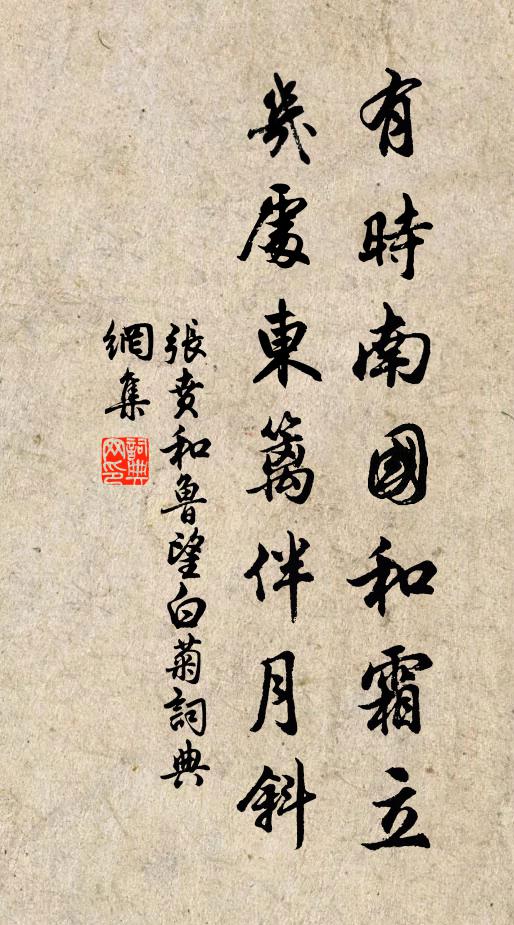 有時南國和霜立
幾處東籬伴月斜
張賁和魯望白菊詞典
網集
詞典
网印